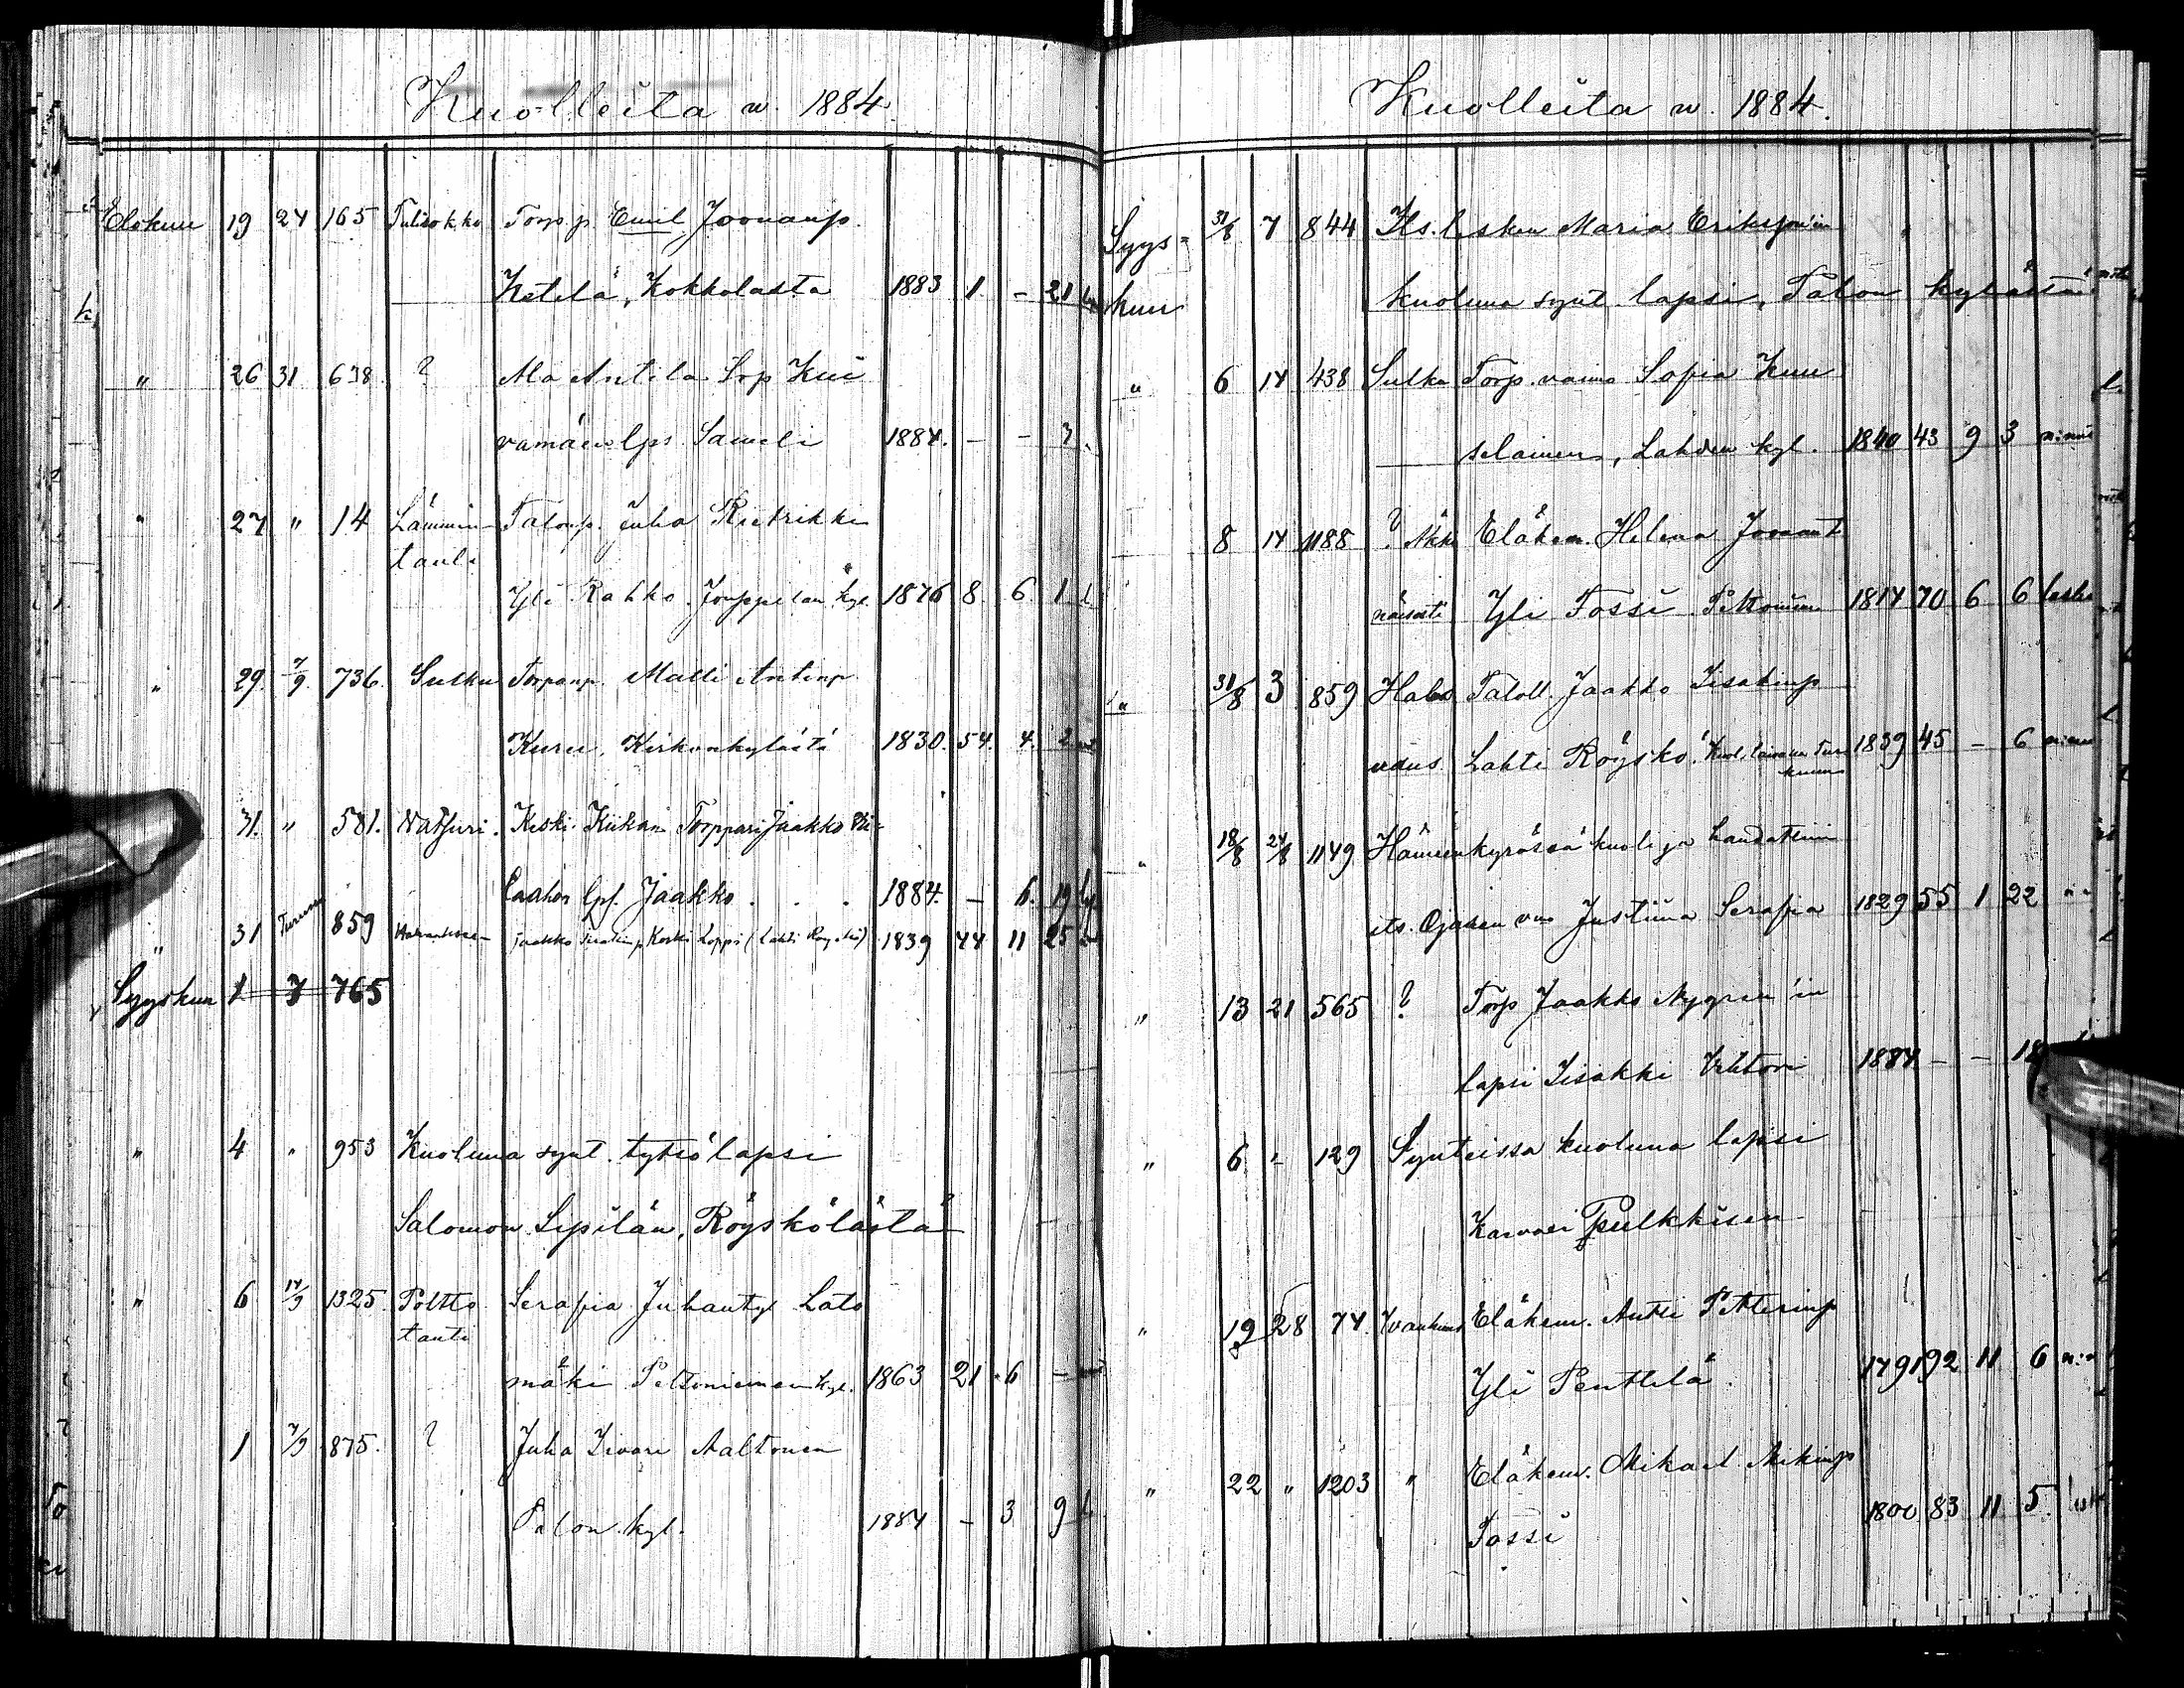 Kuolleita w. 1884.
Elokuu 19 24 165 Tulirokko Torp. p. Emil Joonanp.
Ketelä, Kokkolasta 1883 1 - 21
" 26 31 638 ? Ala Antila Trp Kui
vamäen lps. Sameli 1884. - - 3
" 27 " 14 Lämmin- Talonp. Juha Rietrikki
tauti
Yli Rahko. Jouppilan kyl. 1876 8 6 1
" 29. 7/9. 736. Sulku Torpanp. Matti Antinp
Kuru, Kirkonkylästä 1830. 54. 4. 2
31. " 581. Natsuri. Keski Kiikan Torppari Jaakko
lps. Jaakko . . . 1884. - 6. 19
" 31 859 Jaakko Koski Loppi (Lahti Röyskö) 1839 44 11 25
Syyskuu 1 7 765
" 4 " 953 Kuoluna synt. tyttölapsi
Salomon Sipilän, Röyskölästä
" 6 14/9 1325. Poltto Serafia Juhantyt. Lato
tauti
mäki Peltoniemen kyl. 1863 21 6 -
1 7/9 875. ? Juha Iivari Aaltonen
Palon kyl. 1884 - 3 9
Kuolleita w. 1884.
Syys- 31/8 7 844 Its. lesken Maria Eriksson'in
kuu kuoluna synt. lapsi, Palon kylästä
" 6 14 438 Sulku Torp. vaimo Sofia Kuu
selainen, Lahden kyl. 1840 43 9 3
8 14 1188 ? Äkki Eläkem. Helena Joonant
näisesti Yli Fossi Peltoniemi 1814 70 6 6 leski
" 31/8 3 859 Taloll. Jaakko Iisakinp
Lahti Röyskö. 1839 45 - 6
" 18/8 24/8 1149 Hämeenkyrössä kuoli ja haudattiin
its. Ojasen vmo Justiina Serafia 1829 55 1 22
" 13 21 565 ? Torp Jaakko Nygren'in
lapsi Iisakki Vihtori 1884 - - 18
" 6 " 129 Synteissä kuoluna lapsi
Pulkkisen
" 19 28 74. Wanhuus Eläkem. Antti Petterinp
Yli Penttilä. 1791 92 11 6
" 22 " 1203 " Eläkem. Mikael Mikinp
Fossi 1800 83 11 5.